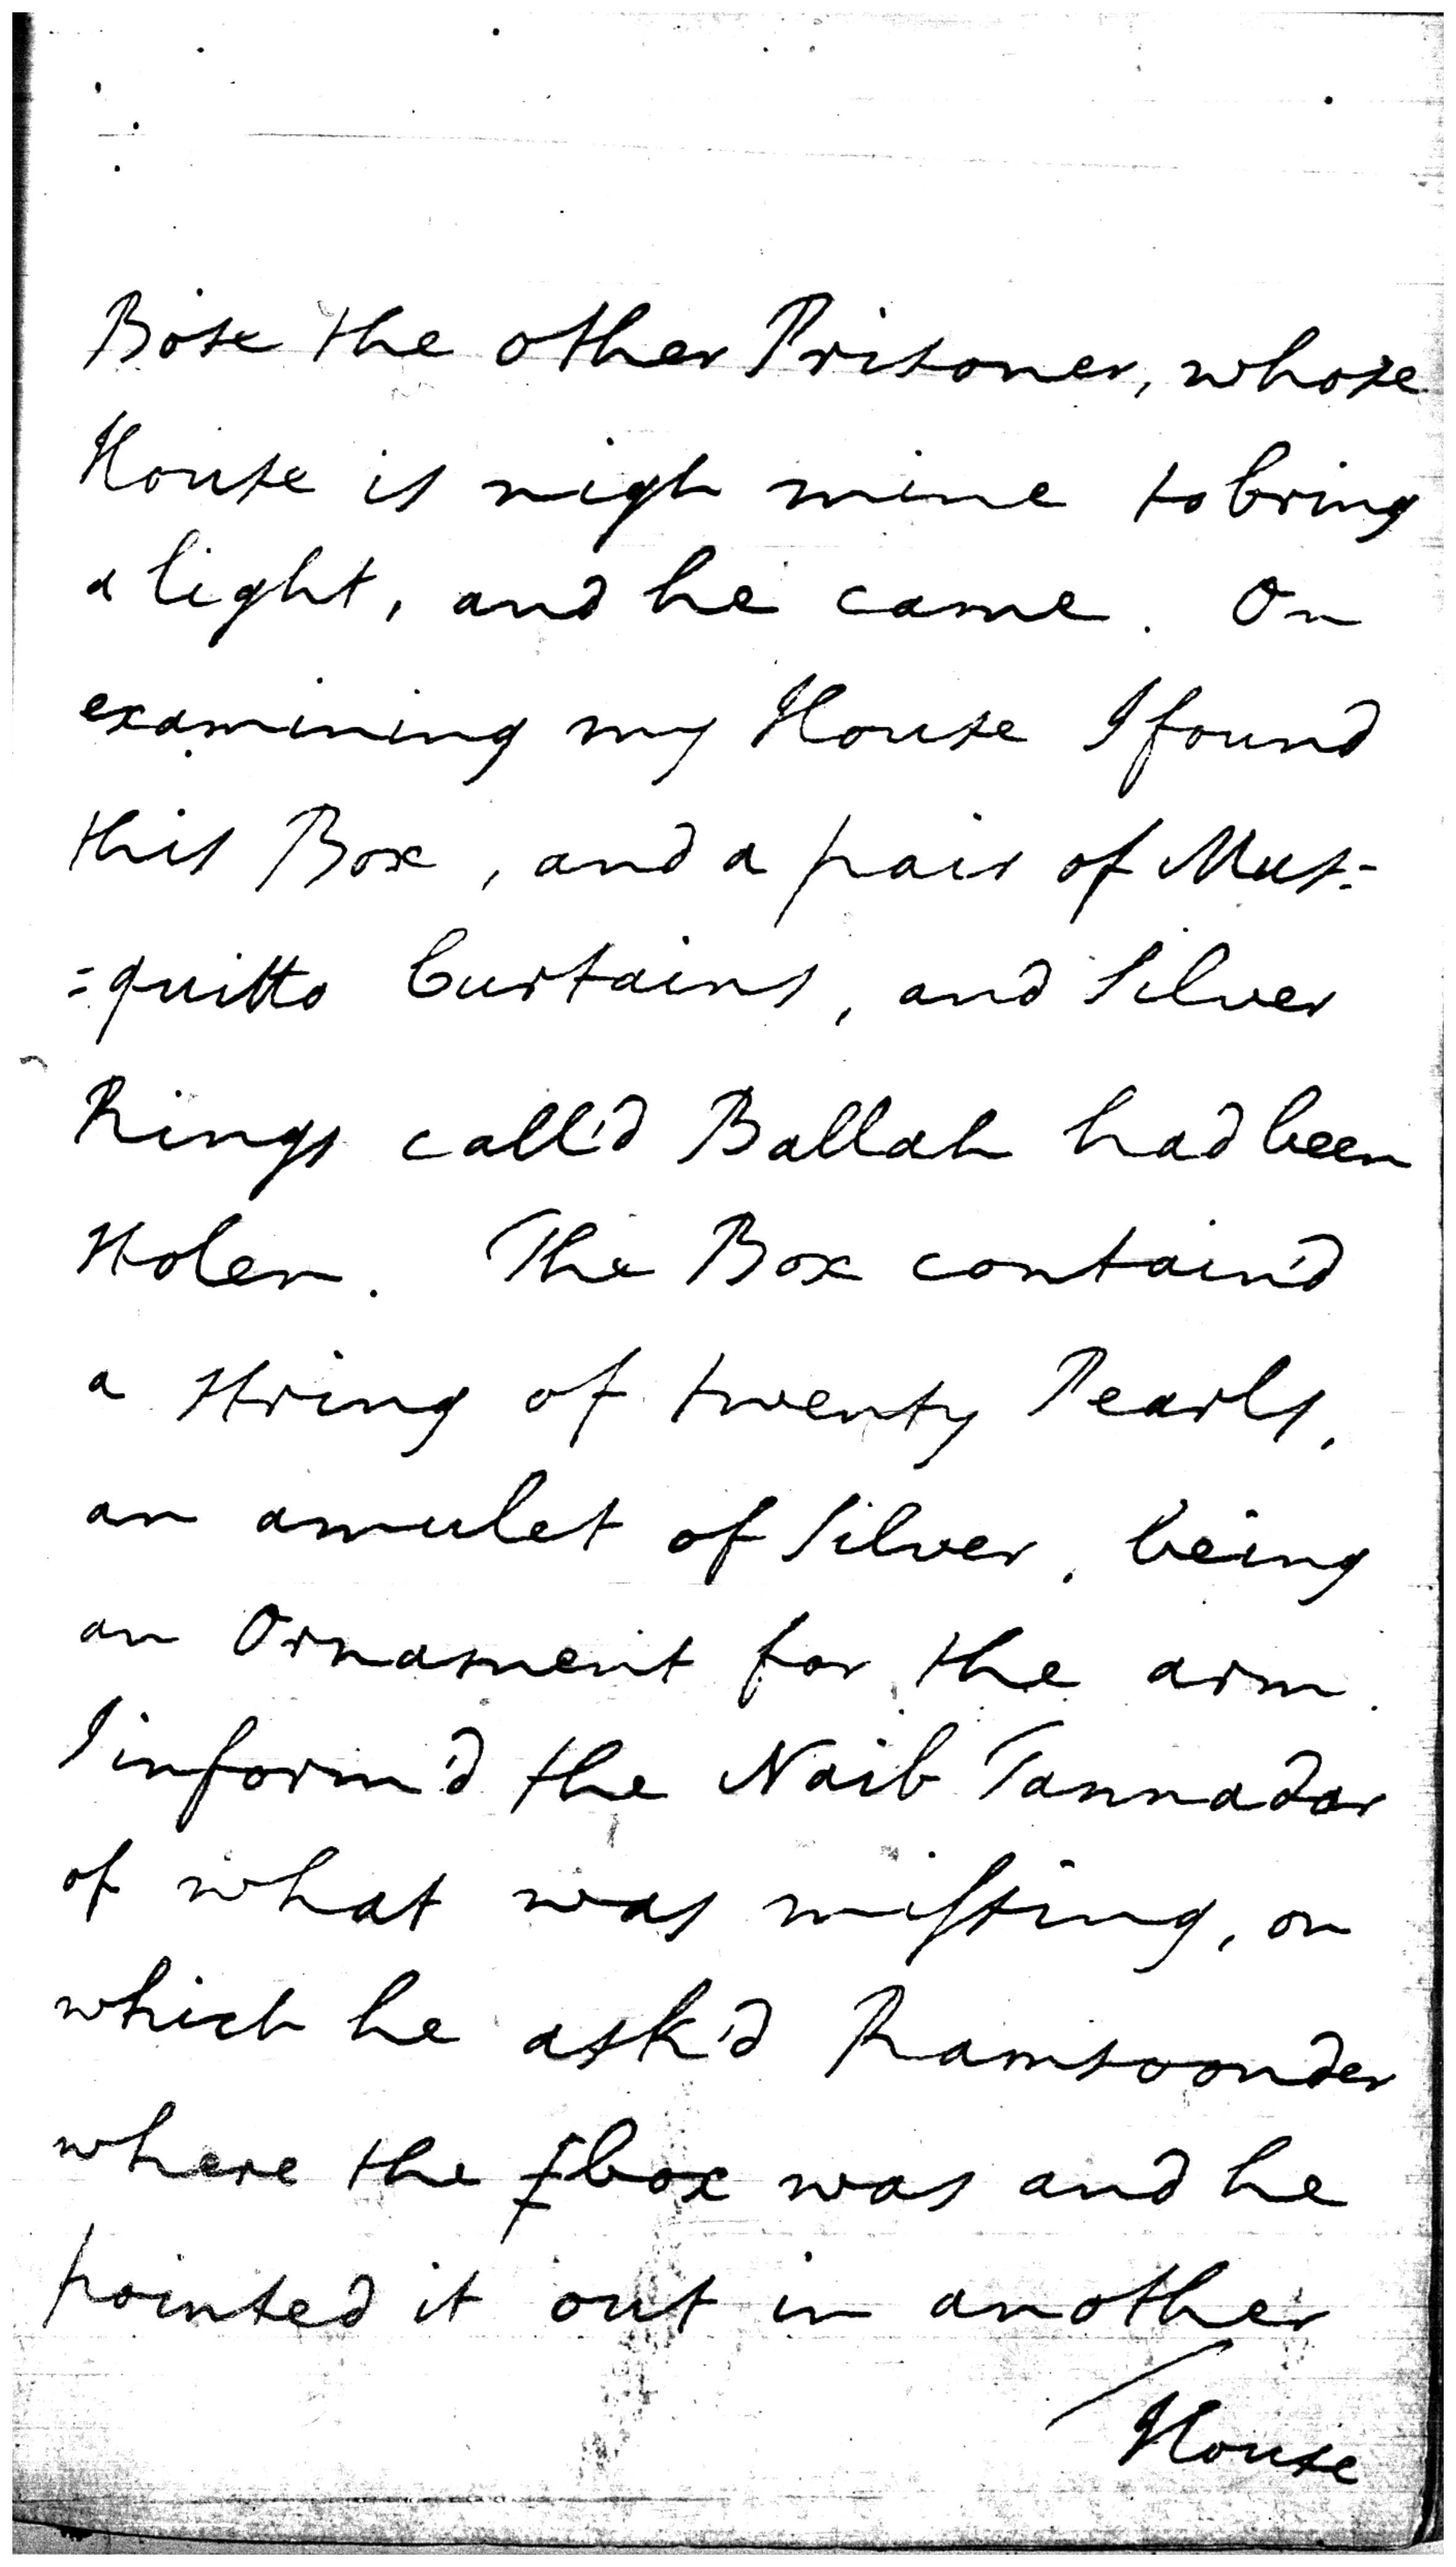 Bose the other Prisoner, whose
House is nigh mine to bring
a light, and he came. On
examining my House I found
this Box, and a pair of Mus=
=quitto Curtains, and Silver
Rings call'd Ballah had been
stolen. The Box contain'd
a string of twenty Pearls,
an amulet of Silver, being
an Ornament for the arm.
I inform'd the Naib Tannadar
of what was missing, on
which he ask'd Ramsoonder
where the box was and he
pointed it out in another
House